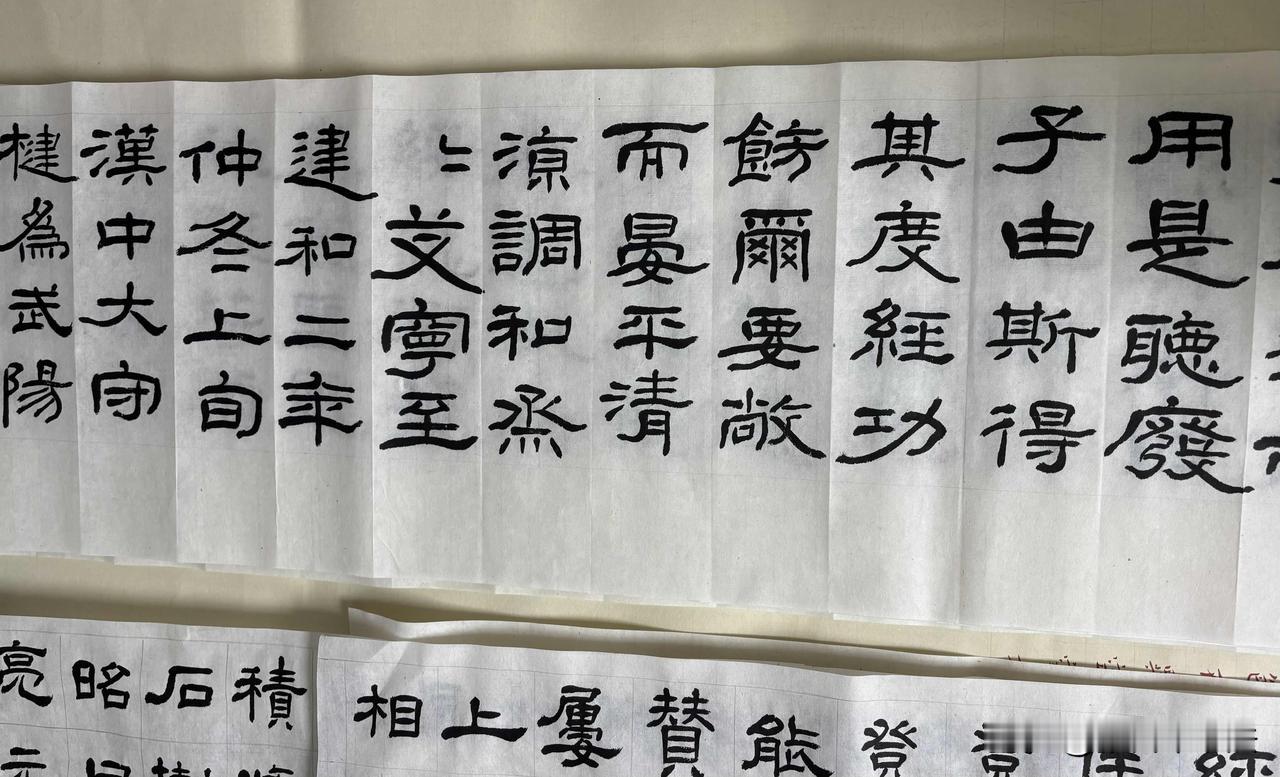 用是聽廢
子由斯得
其度經功
飭爾要敞
而晏平清
涼調和烝
〻艾寧至
建和二年
仲冬上旬
漢中大守
楗為武陽
登
能
贊
屢
上
相
積
石
昭
亮